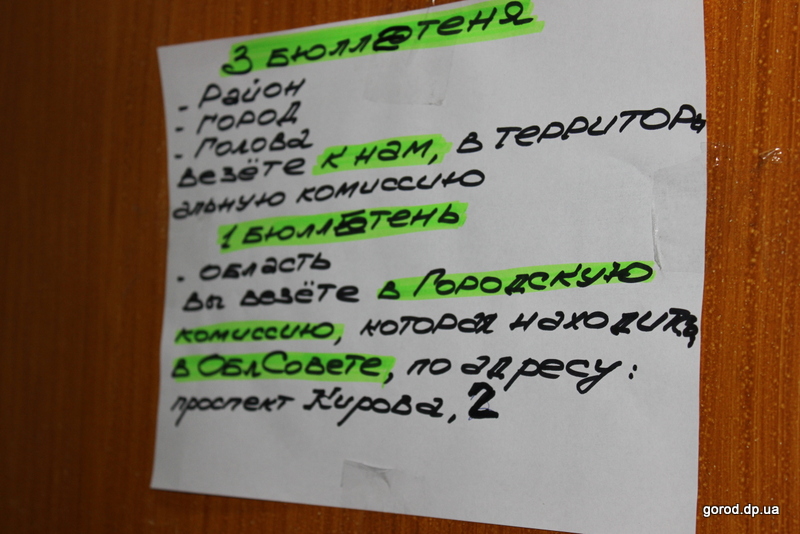 3 БЮЛЛЕТЕНЯ
- РАЙОН
- ГОРОД
- ГОЛОВА
везёте к нам, в ТЕРРИТОРИ
альную комиссию
1 БЮЛЛЕТЕНЬ
- ОБЛАСТЬ
Вы везёте в Городскую
комиссию, которая находится
в ОблСовете, по адресу:
проспект Кирова, 2
gorod.dp.ua